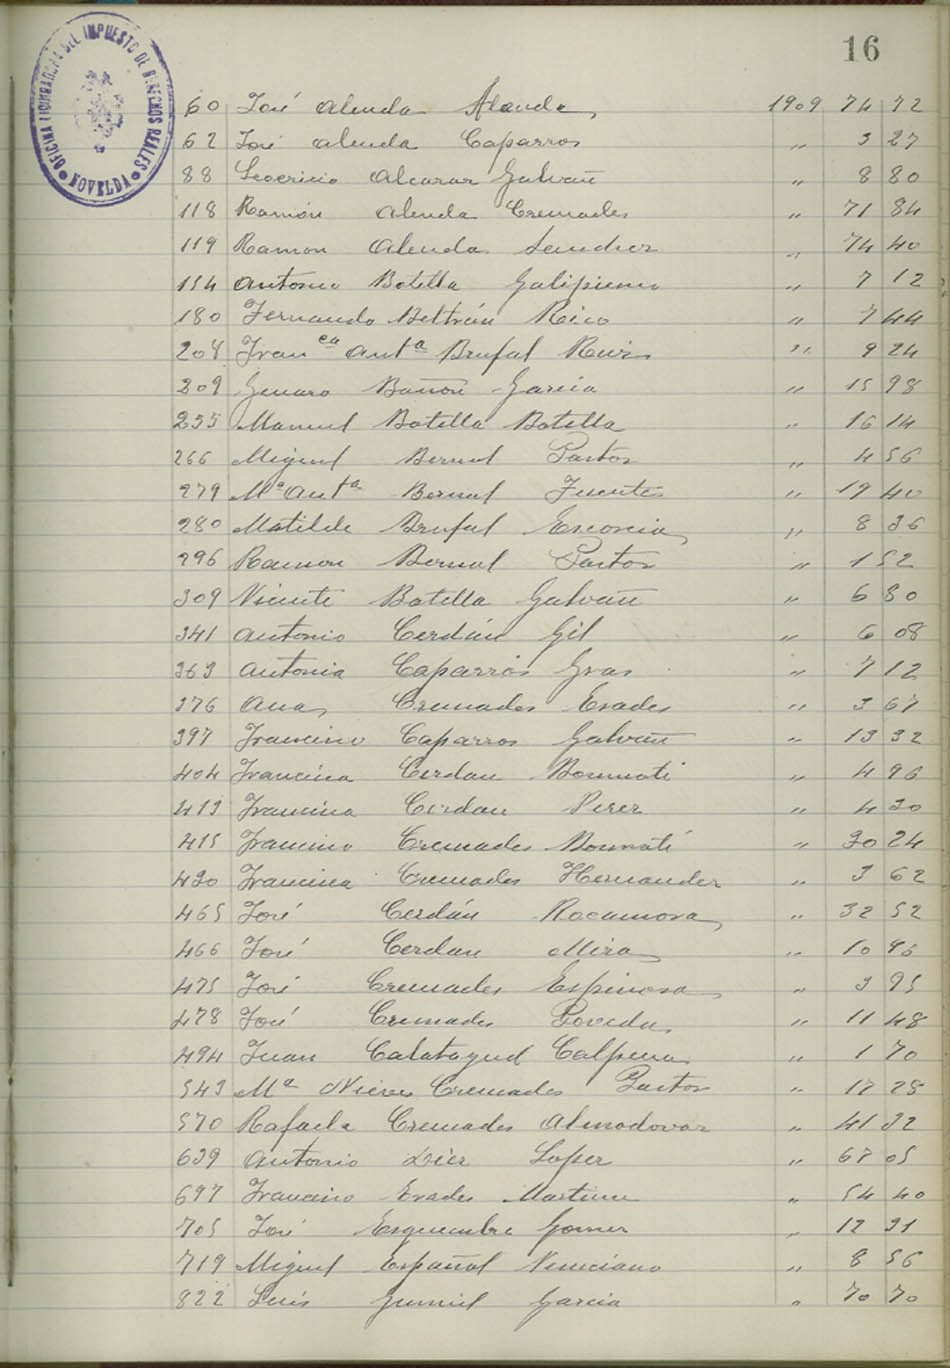 16
OFICINA LIQUIDADORA DEL IMPUESTO DE DERECHOS REALES
NOVELDA
60 José Alenda Alenda 1909 74 72
62 José Alenda Caparros " 3 27
88 Leocricio Alcaraz Galvañ " 8 80
118 Ramón Alenda Cremades " 71 84
119 Ramon Alenda Sanchez " 74 40
154 Antonio Botella Galipienso " 7 12
180 Fernando Beltrán Rico " 7 44
204 Fran ca Ant a Brufal Ruiz " 9 24
209 Genaro Bañon Garcia " 15 98
255 Manuel Botella Botella " 16 14
266 Miguel Bernal Pastor " 4 56
279 Mª Antª Bernal Fuentes " 19 40
280 Matilde Brufal Escorcia " 8 36
296 Ramon Bernal Pastor " 1 52
309 Vicente Botella Galvañ " 6 80
341 Antonio Cerdán Gil " 6 08
363 Antonia Caparrós Gras " 7 12
376 Ana Cremades Erades " 3 67
397 Francisco Caparros Galvañ " 13 32
404 Francisca Cerdan Bonmati " 4 96
413 Francisca Cerdan Perez " 4 30
415 Francisco Cremades Bonmatí " 30 24
430 Francisca Cremades Hernandez " 3 62
465 José Cerdán Rocamora " 32 52
466 José Cerdan Mira " 10 96
475 José Cremades Espinosa " 3 95
478 José Cremades Poveda " 11 48
494 Juan Calatayud Calpena " 1 70
543 Mª Nieves Cremades Pastor " 17 28
570 Rafaela Cremades Almodovar " 41 32
639 Antonio Diez Lopez " 67 05
697 Francisco Erades Martinez " 54 40
705 José Esquembre Gomez " 12 31
719 Miguel Español Veneciano " 8 56
822 Luis Gumiel Garcia " 70 70